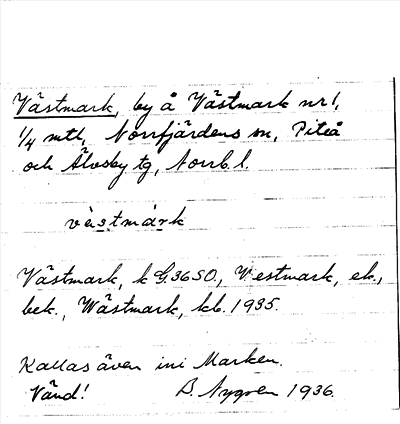 Västmark, by å Västmark nr 1,
1/4 mtl, Norrfjärdens sn, Piteå
och Älvsby tg, Norrb. l.
vàs̲tmár̲k
Västmark, k G.3650, Westmark, ek.,
bek., Wästmark, kb. 1935.
Kallas även ini Marken.
Vänd! B. Nygren 1936.